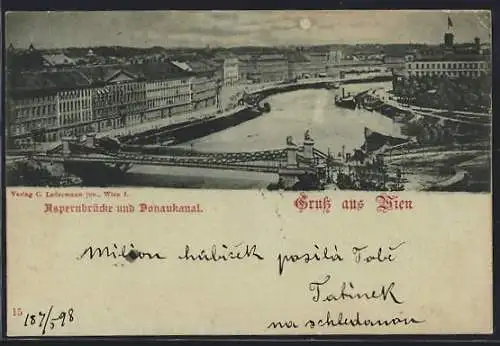 Verlag C. Ledermann jun., Wien I.
Aspernbrücke und Donaukanal.
Gruß aus Wien
Milion hubiček posilá Tobě
Tatinek
na schledanou
15
18 7/5 98